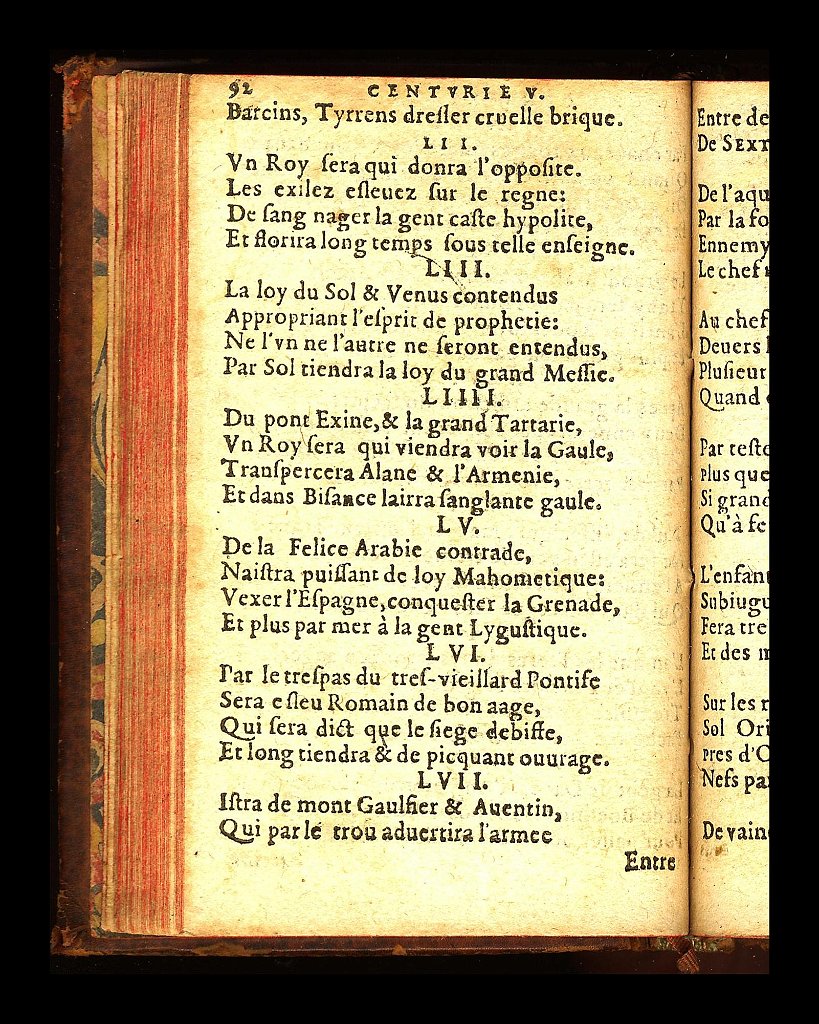 92 CENTVRIE V.
Barcins, Tyrrens dreſſer cruelle brique.
LII.
Vn Roy ſera qui donra l'oppoſite.
Les exilez eſleuez ſur le regne:
De ſang nager la gent caſte hypolite,
Et florira long temps ſous telle enſeigne.
LIII.
La loy du Sol & Venus contendus
Appropriant l'eſprit de prophetie:
Ne l'vn ne l'autre ne ſeront entendus,
Par Sol tiendra la loy du grand Meſſie.
LIIII.
Du pont Exine, & la grand Tartarie,
Vn Roy ſera qui viendra voir la Gaule,
Tranſpercera Alane & l'Armenie,
Et dans Biſance lairra ſanglante gaule.
LV.
De la Felice Arabie contrade,
Naiſtra puiſſant de loy Mahometique:
Vexer l'Eſpagne, conqueſter la Grenade,
Et plus par mer à la gent Lyguſtique.
LVI.
Par le treſpas du treſ-vieillard Pontife
Sera eſleu Romain de bon aage,
Qui ſera dict que le ſiege debiffe,
Et long tiendra & de picquant ouurage.
LVII.
Iſtra de mont Gaulfier & Auentin,
Qui par le trou aduertira l'armee
Entre
Entre de
De SEXT
De l'aqu
Par la fo
Ennemy
Le chef
Au chef
Deuers
Pluſieur
Quand
Par teſte
Plus que
Si grand
Qu'à ſe
L'enfant
Subiugu
Fera tre
Et des
Sur les
Sol Ori
Pres d'O
Nefs pa
De vain